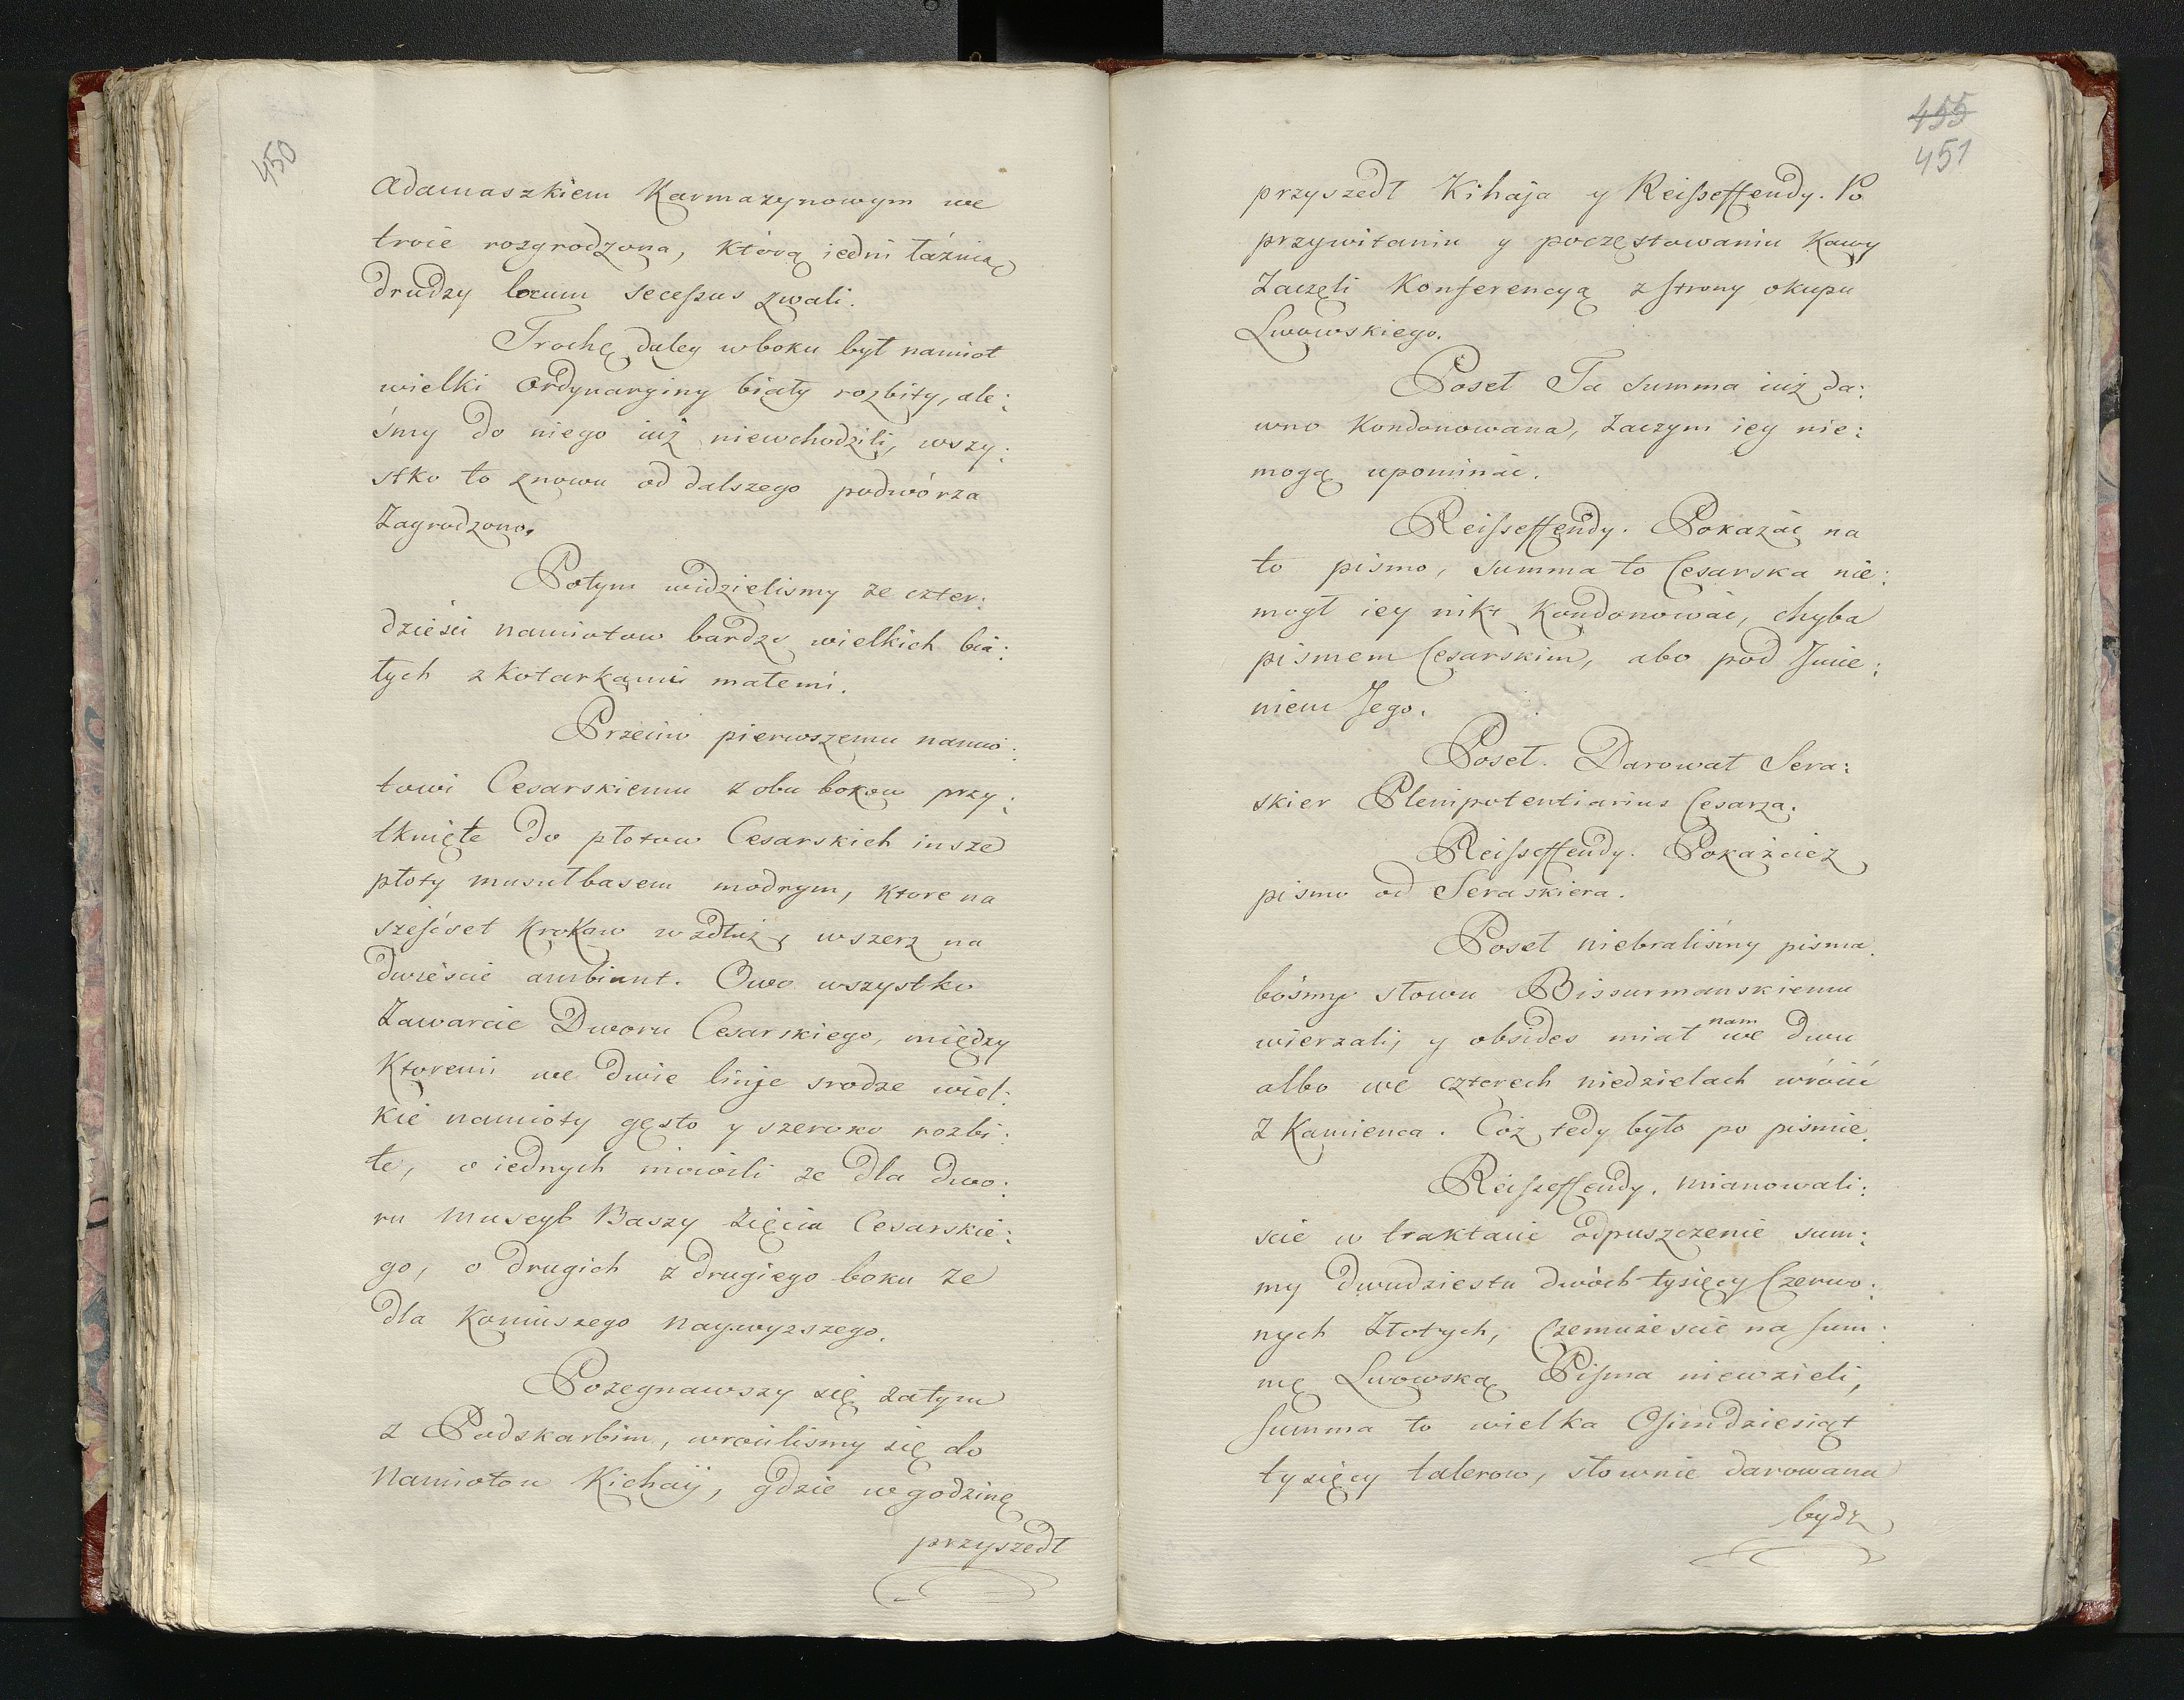 450
Adamaszkiem Karmazynowym we
troie rozgrodzona, którą iedni łaźnią
drudzy locum secessus zwali.
Trochę daley w boku był namiot
wielki Ordynaryiny biały rozbity, ale:
śmy do niego iuż niewchodzili, wszy:
stko to znowu od dalszego podwórza
Zagrodzono.
Potym widzielismy ze czter:
dzieści namiotow bardzo wielkich bia:
łych z kotarkami małemi.
Przeciw pierwszemu namio:
towi Cesarskiemu z obu bokow przy:
tknięte do płotow Cesarskich insze
płoty musułbasem modrym, ktore na
sześćset krokow wzdłuż, wszerz na
dwieście ambiunt. Owo wszystko
Zawarcie Dworu Cesarskiego, między
Ktoremi we dwie linje srodze wiel:
kie namioty gęsto y szeroko rozbi:
te, o iednych mówili ze dla dwo:
ru Museyb Baszy Zięcia Cesarskie:
go, o drugich z drugiego boku ze
dla Koniuszego naywyzszego.
Pozegnawszy się zatym
z Podskarbim, wrocilismy się do
Namiotow Kichaij, gdzie w godzinę
przyszedł
455
451
przyszedł Kihaja y Reisseffendy. Po
przywitaniu y poczęstowaniu Kawy
Zaczęli Konferencyą z strony okupu
Lwowskiego.
Poseł Ta summa iuż da:
wno Kondonowana, Zaczym iey nie:
mogą upominać.
Reisseffendy. Pokazać na
to pismo, summa to Cesarska nie:
mogł iey nikt Kondonować, chyba
pismem Cesarskim, abo pod Jmie:
niem Jego.
Poseł. Darował Sera:
skier Plenipotentiarius Cesarza.
Reisseffendy. Pokażcież
pismo od Seraskiera.
Poseł niebraliśmy pisma
bośmy słowu Bissurmanskiemu
wierzali, y obsides miał nam we dwu
albo we czterech niedzielach wrócić
z Kamienca. Cóż tedy było po pismie.
Reisseffendy. mianowali:
scie w traktacie odpuszczenie sum:
my dwudziestu dwóch tysięcy Czerwo:
nych Złotych, Czemużescie na sum:
mę Lwowską Pisma niewzieli,
Summa to wielka Osimdziesiąt
tysięcy talerow, słownie darowana
bydz